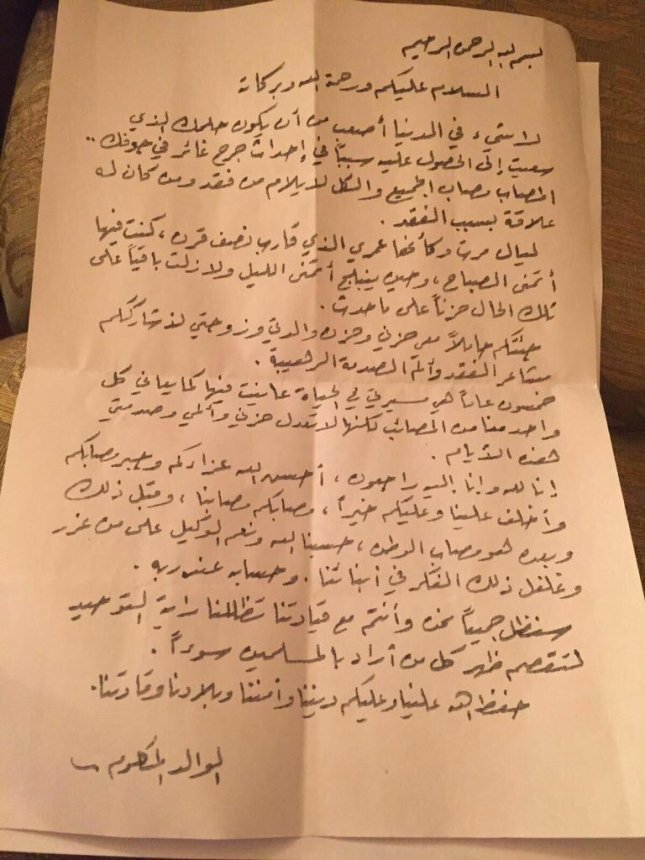 بسم الله الرحمن الرحيم
السلام عليكم ورحمة الله وبركاته
لا شيء في الدنيا أصعب من أن يكون حلمك الذي
سعيت إلى الحصول عليه سبباً في إحداث جرح غائر في جوفك ..
المصاب مصاب الجميع والكل لا يلام من فقد ومن كان له
علاقة بسبب الفقد .
ليال مرت وكأنها عمري الذي قارب نصف قرن ، كنت فيها
أتمنى الصباح ، وحين ينبلج أتمنى الليل ولا زلت باقياً على
تلك الحال حزناً على ما حدث .
جئتكم حاملاً معي حزني وحزن والدتي وزوجتي لنشارككم
مشاعر الفقد وألم الصدمة الرهيبة .
خمسون عاماً هي مسيرتي في الحياة عانيت فيها كما يعاني كل
واحد منا من المصائب لكنها لا تعدل حزني وألمي وصدمتي
هذه الأيام .
إنا لله وإنا إليه راجعون ، أحسن الله عزاءكم وجبر مصابكم
وأخلف علينا وعليكم خيراً ، مصابكم مصابنا ، وقبل ذلك
وبعده هو مصاب الوطن ، حسبنا الله ونعم الوكيل على من غرر
وغلغل ذلك الفكر في أبنائنا . وحسابه عند ربه .
سنظل جميعاً نحن وأنتم مع قيادتنا تظللنا راية التوحيد
لتقصم ظهر كل من أراد بالمسلمين سوءاً .
حفظ الله علينا وعليكم ديننا وأمننا وبلادنا وقادتنا .
الوالد المكلوم